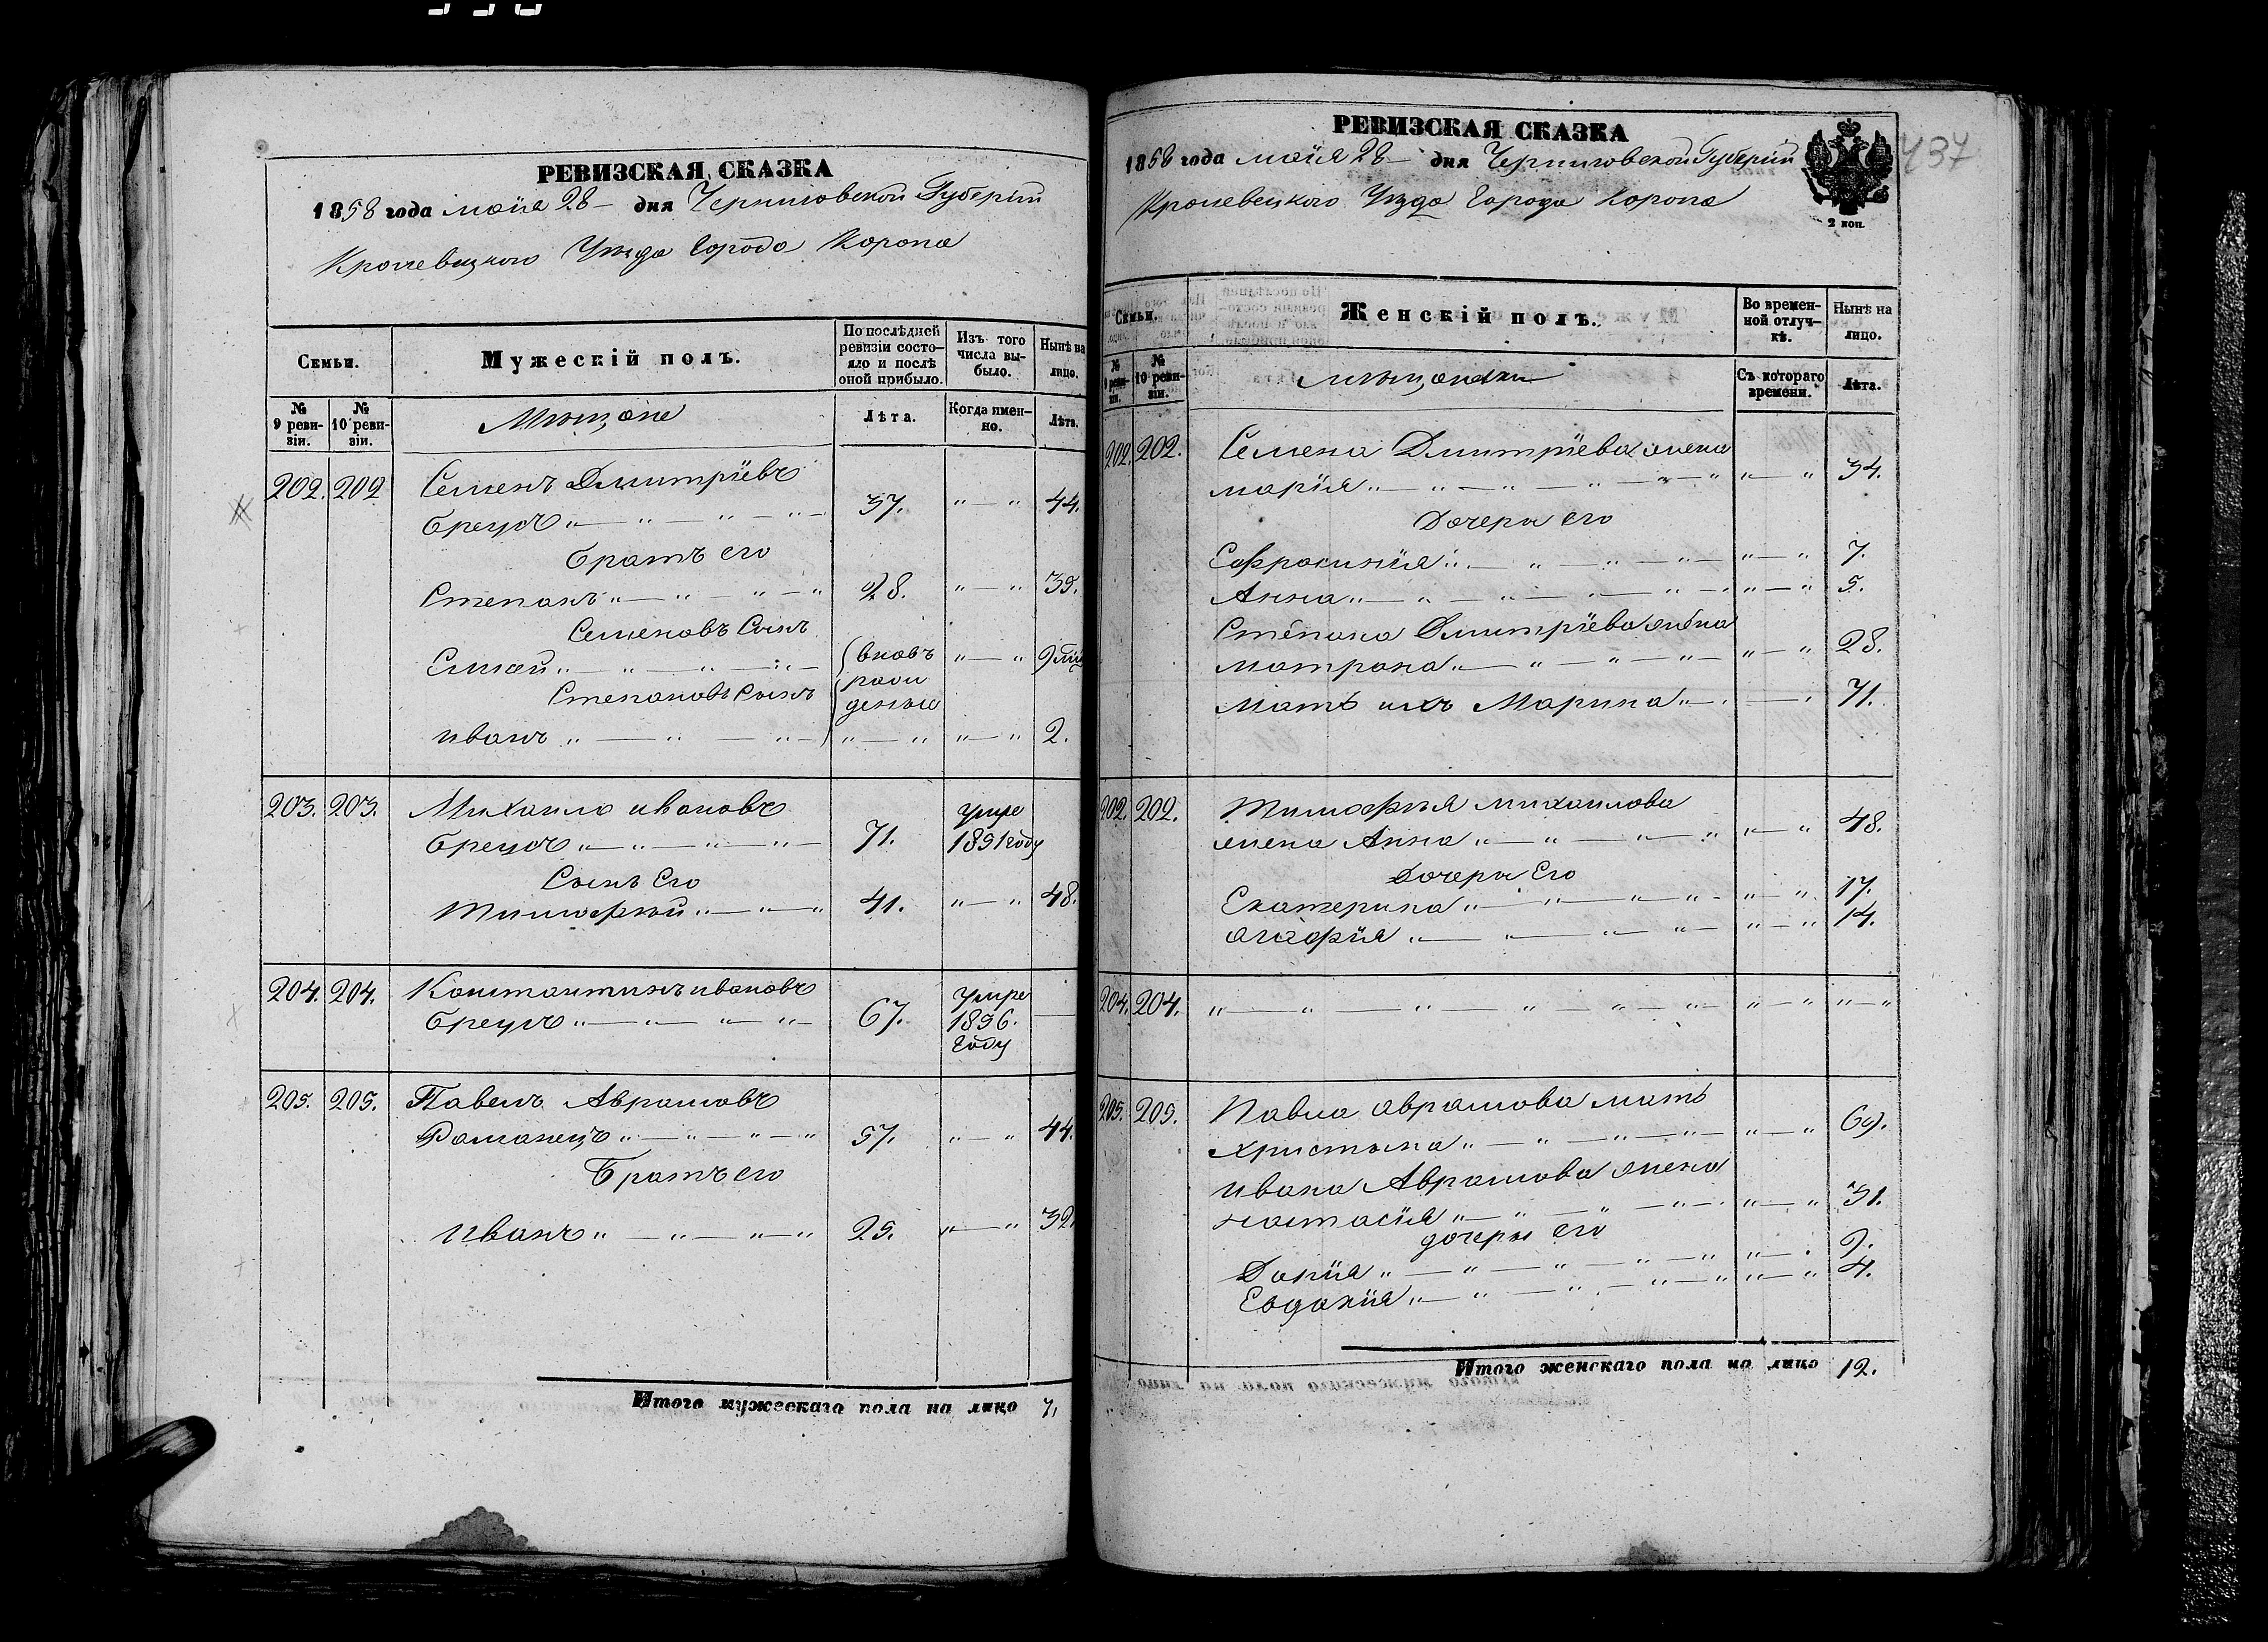 РЕВИЗСКАЯ СКАЗКА
1858 года мая 28 — дня Черниговской Губерніи
Кролевецкого Уезда Города Коропа
Семьи.
Мужескій полъ.
По послѣдней ревизіи состояло и послѣ оной прибыло.
Изъ того числа выбыло.
Нынѣ на лицо.
№ 9 ревизіи.
№ 10 ревизіи.
Мещане
Лѣта.
Когда именно.
Лѣта.
202. 202 Семенъ Дмитріевъ
Бреусъ „ — „ — „ — „ — 37. „ — „ 44.
братъ его
Степанъ „ — „ — „ — „ 28. „ — „ 35.
Семеновъ Сынъ
„ — „ — „ — вновь „ — „
Степановъ Сынъ рожденые
иванъ „ — „ — „ — „ — „ „ — „ 2.
203. 203. Михаило ивановъ умре
Бреусъ „ — „ — „ — „ — 71. 1851 году
Сынъ Его
Тимофей „ — „ — „ 41. „ — „ 48.
204. 204. Константинъ ивановъ умре
Бреусъ „ — „ — „ — „ — 67. 1856. —
году
205. 205. Павелъ Аврамовъ
Романецъ „ — „ — „ — „ 37. „ — „ 44.
Братъ его
Иванъ „ — „ — „ — „ 25. „ — „ 32.
Итого мужескаго пола на лицо 7.
РЕВИЗСКАЯ СКАЗКА
1858 года мая 28 — дня Черниговской Губерніи
437
Кролевецкого Уезда Города Коропа
2 коп.
Семьи.
Женскій полъ.
Во временной отлучкѣ.
Нынѣ на лицо.
№ 9 ревизіи.
№ 10 ревизіи.
мещанки
Съ котораго времени.
Лѣта.
202. 202. Семена Дмитріева жена
марія „ — „ — „ — „ — „ — „ „ — „ 34.
Дочери его
Ефросинія „ — „ — „ — „ — „ — „ 7.
Анна „ — „ — „ — „ — „ — „ — „ 5.
Степана Дмитріева жена
матрона „ — „ — „ — „ — „ — „ 28.
Мать ихъ Марина „ — — 71.
202. 202. Тимофея михаилова
жена Анна „ — „ — „ — „ „ — „ 48.
Дочери Его
Екатерина „ — „ — „ — „ — „ — „ 17.
агафія „ — „ — „ — „ — „ — „ 14.
204. 204. „ — „ — „ — „ — „ — „ — „ — „ „ — „
205. 205. Павла аврамова мать
христина „ — „ — „ — „ — „ — „ 69.
ивана Аврамова жена
настасія „ — „ — „ — „ — „ — „ 31.
дочеры его
„ — „ — „ — „ — „ „ — 9.
Евдокія „ — „ — „ — „ — „ „ — „ 4.
Итого женскаго пола на лицо 12.